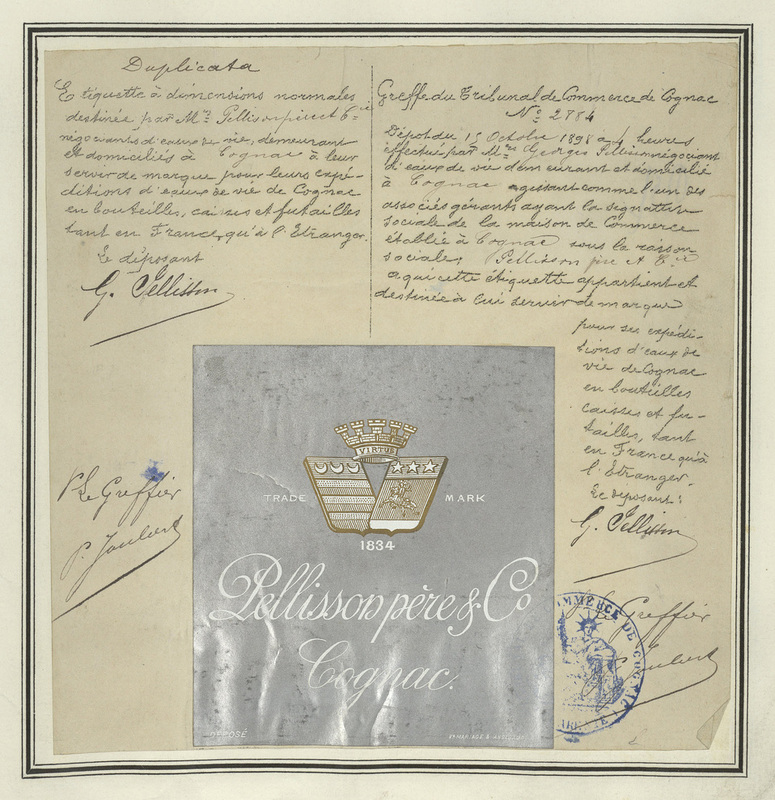 Duplicata
Etiquette à dimensions normales
destinée par Mrs Pellisson père et Cie
négociants d'eaux de vie, demeurant
et domiciliés à Cognac à leur
servir de marque pour leurs expé-
ditions d'eaux de vie de Cognac
en bouteilles, caisses et futailles
tant en France, qu'à l'Etranger.
Le déposant
G. Pellisson
Pr Le Greffier
P. Joubert
Greffe du Tribunal de Commerce de Cognac
No 2784
Dépôt du 15 Octobre 1898 à heures
effectué par Georges Pellisson négociant
d'eaux de vie demeurant et domicilié
à Cognac agissant comme l'un des
associés gérants ayant la signature
sociale de la maison de Commerce
établie à Cognac sous la raison
sociale; Pellisson père & Cie
a qui cette étiquette appartient et
destinée à lui servir de marque
pour ses expédi-
tions d'eaux de
vie de Cognac
en bouteilles
caisses et fu-
tailles, tant
en France qu'à
l'Etranger.
Le déposant:
G. Pellisson
Le Greffier
Joubert
VIRTUS
TRADE MARK
1834
Pellisson père & Co
Cognac.
DÉPOSÉ
COMMERCE DE COGNAC